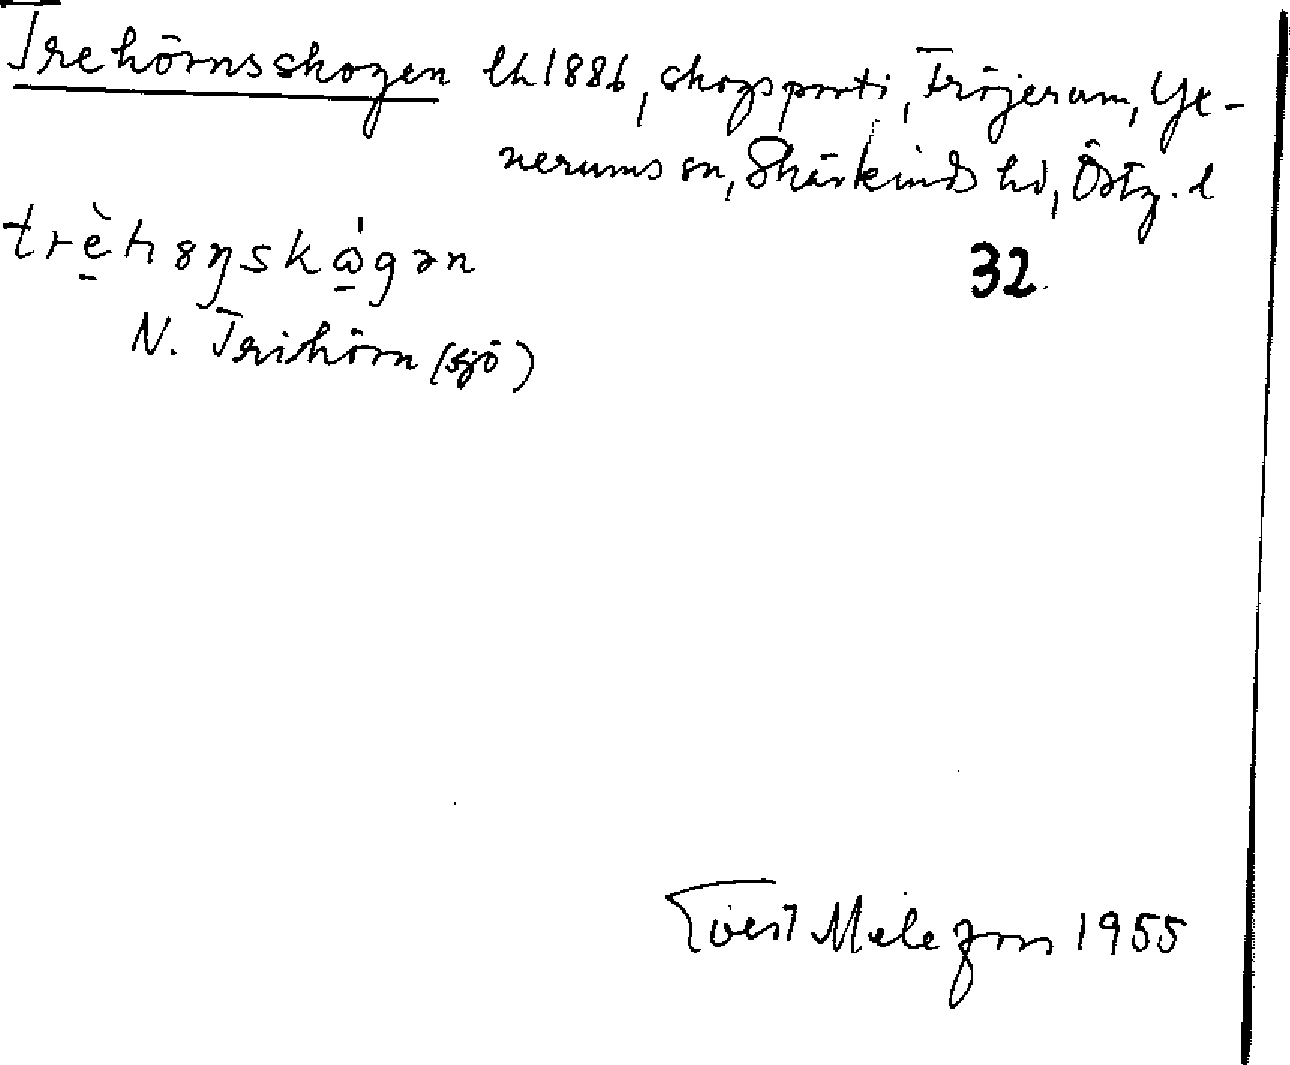 Trehörnsskogen lh 1886, skogsparti, Fröjerum, Yx-
nerums sn, Skärkinds hd, Östg. l
trèhɵɳskɷ́gən
32
N. Trihörn (sjö)
1955